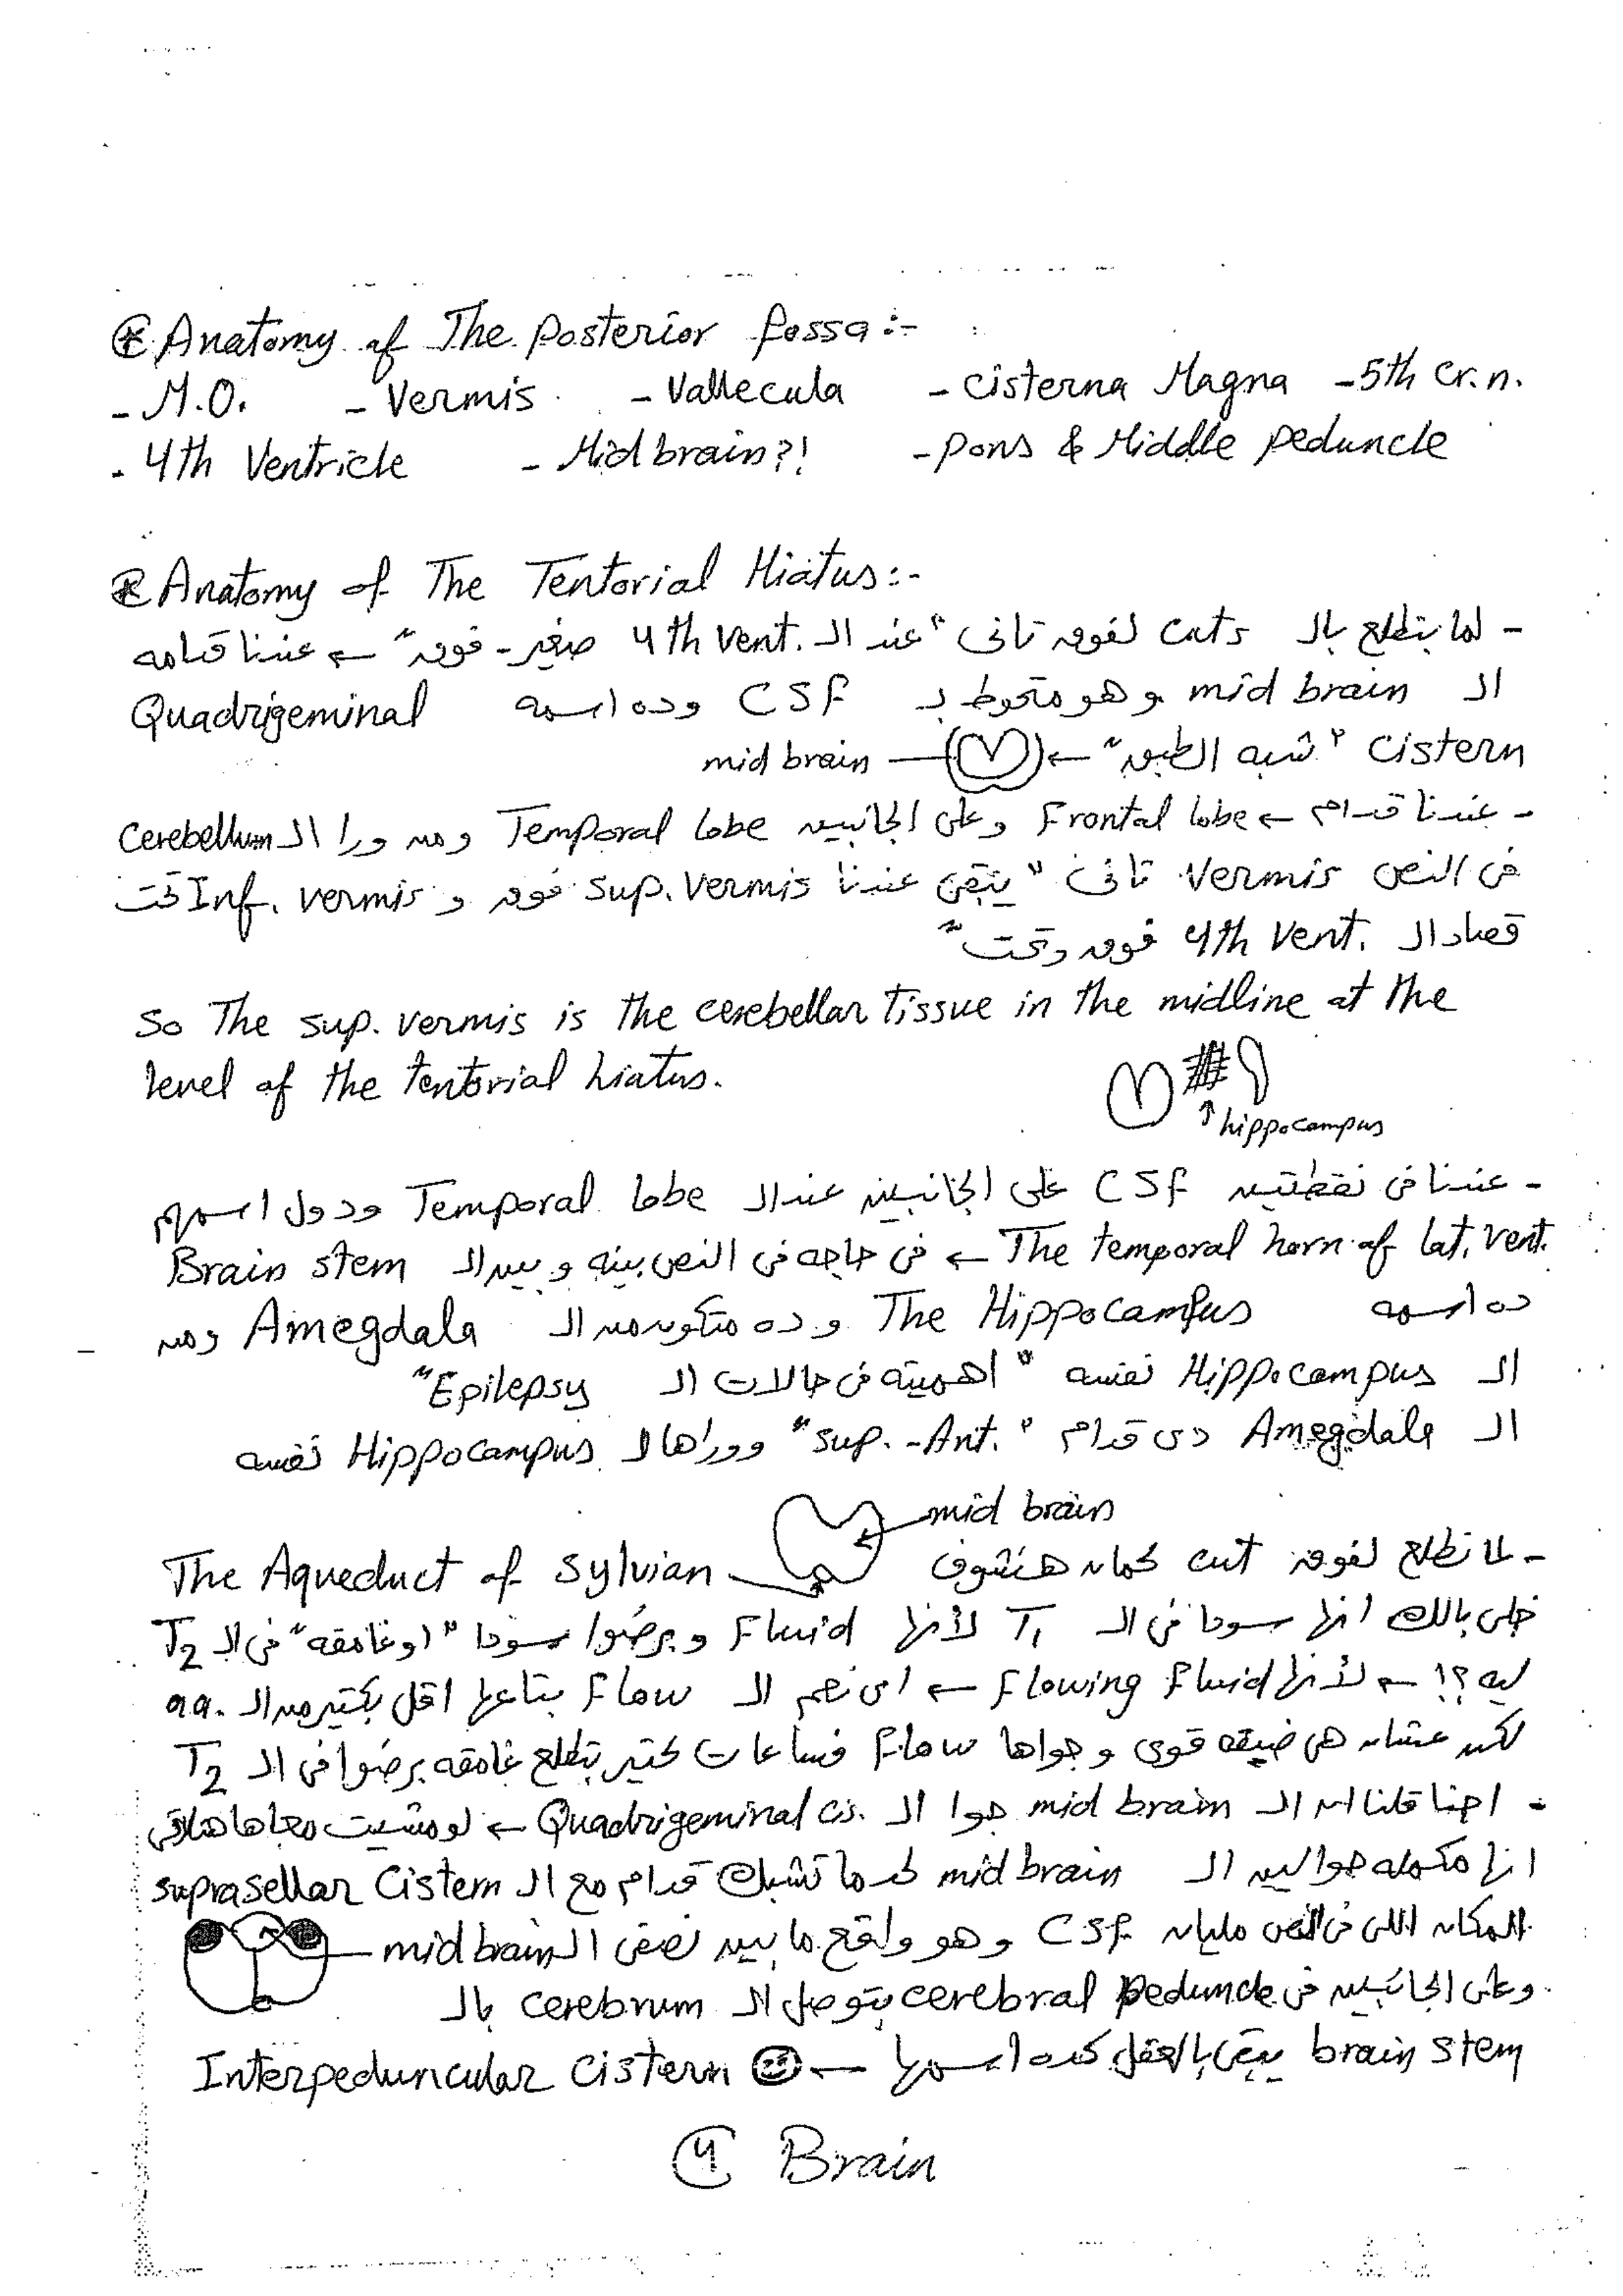 * Anatomy of The Posterior fossa:-
- M.O. - Vermis - Vallecula - Cisterna Magna - 5th cr.n.
- 4th Ventricle - Mid brain?! - Pons & Middle Peduncle
* Anatomy of The Tentorial Hiatus:-
- لما بتطلع بال cuts لفوق تانى "عند ال 4th vent. صغير - فوق" ← عندنا قدامه
ال mid brain وهو متحوط بـ CSF وده اسمه Quadrigeminal
Cistern "شبه الطبق" ←
mid brain
- عندنا قدام ← Frontal lobe وعلى الجانبين Temporal lobe ومن ورا ال Cerebellum
فى النص Vermis تانى "يبقى عندنا sup. vermis فوق و Inf. vermis تحت
قصاد ال 4th vent. فوق وتحت"
So The sup. vermis is the cerebellar tissue in the midline at the
level of the tentorial hiatus.
↑ hippocampus
- عندنا فى نقطتين CSF على الجانبين عند ال Temporal lobe ودول اسمهم
The temporal horn of lat. vent. ← فى حاجه فى النص بينه وبين ال Brain stem
ده اسمه The Hippocampus وده متكون من ال Amegdala ومن
ال Hippocampus نفسه "اهميته فى حالات ال Epilepsy"
ال Amegdala دى قدام "sup. - Ant." ووراها ال Hippocampus نفسه
mid brain
- لما نطلع لفوق cut كمان هنشوف The Aqueduct of Sylvian
خلى بالك انها سودا فى ال T1 لأنها Fluid وبرضوا سودا "او غامقه" فى ال T2
ليه؟! ← لأنها Flowing Fluid ← اى نعم ال Flow بتاعها اقل بكتير من ال aa.
لكن عشان هى ضيقه قوى وجواها Flow فساعات كتير بتطلع غامقه برضوا فى ال T2
- احنا قلنا ان ال mid brain جوا ال Quadrigeminal cis. ← لو مشيت معاها هتلاقى
انها مكمله حوالين ال mid brain لحد ما تشبك قدام مع ال suprasellar Cistern
المكان اللى فى النص مليان CSF وهو واقع ما بين نصفى ال mid brain
وعلى الجانبين فى cerebral peduncle بتوصل ال cerebrum بال
brain stem يبقى بالعقل كده اسمها ← Interpeduncular Cistern
4 Brain